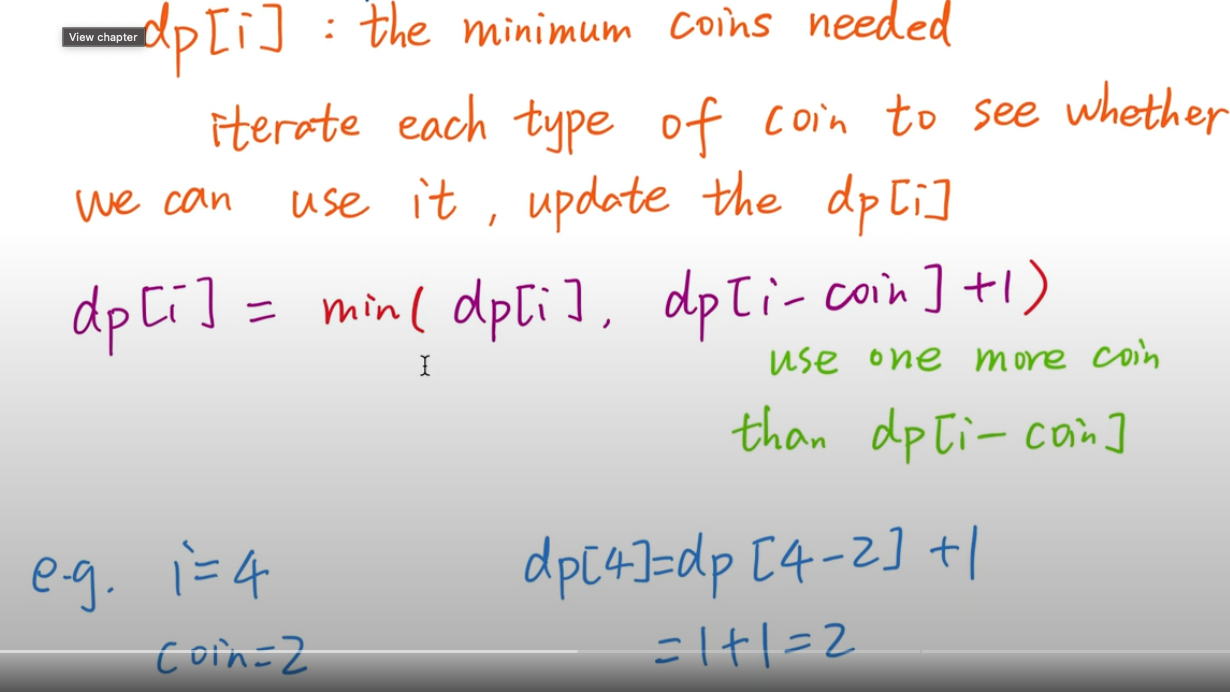 View chapter
dp[i] : the minimum coins needed
iterate each type of coin to see whether
we can use it, update the dp[i]
dp[i] = min( dp[i], dp[i-coin]+1)
use one more coin
than dp[i-coin]
e.g. i=4 dp[4]=dp[4-2]+1
coin=2 =1+1=2